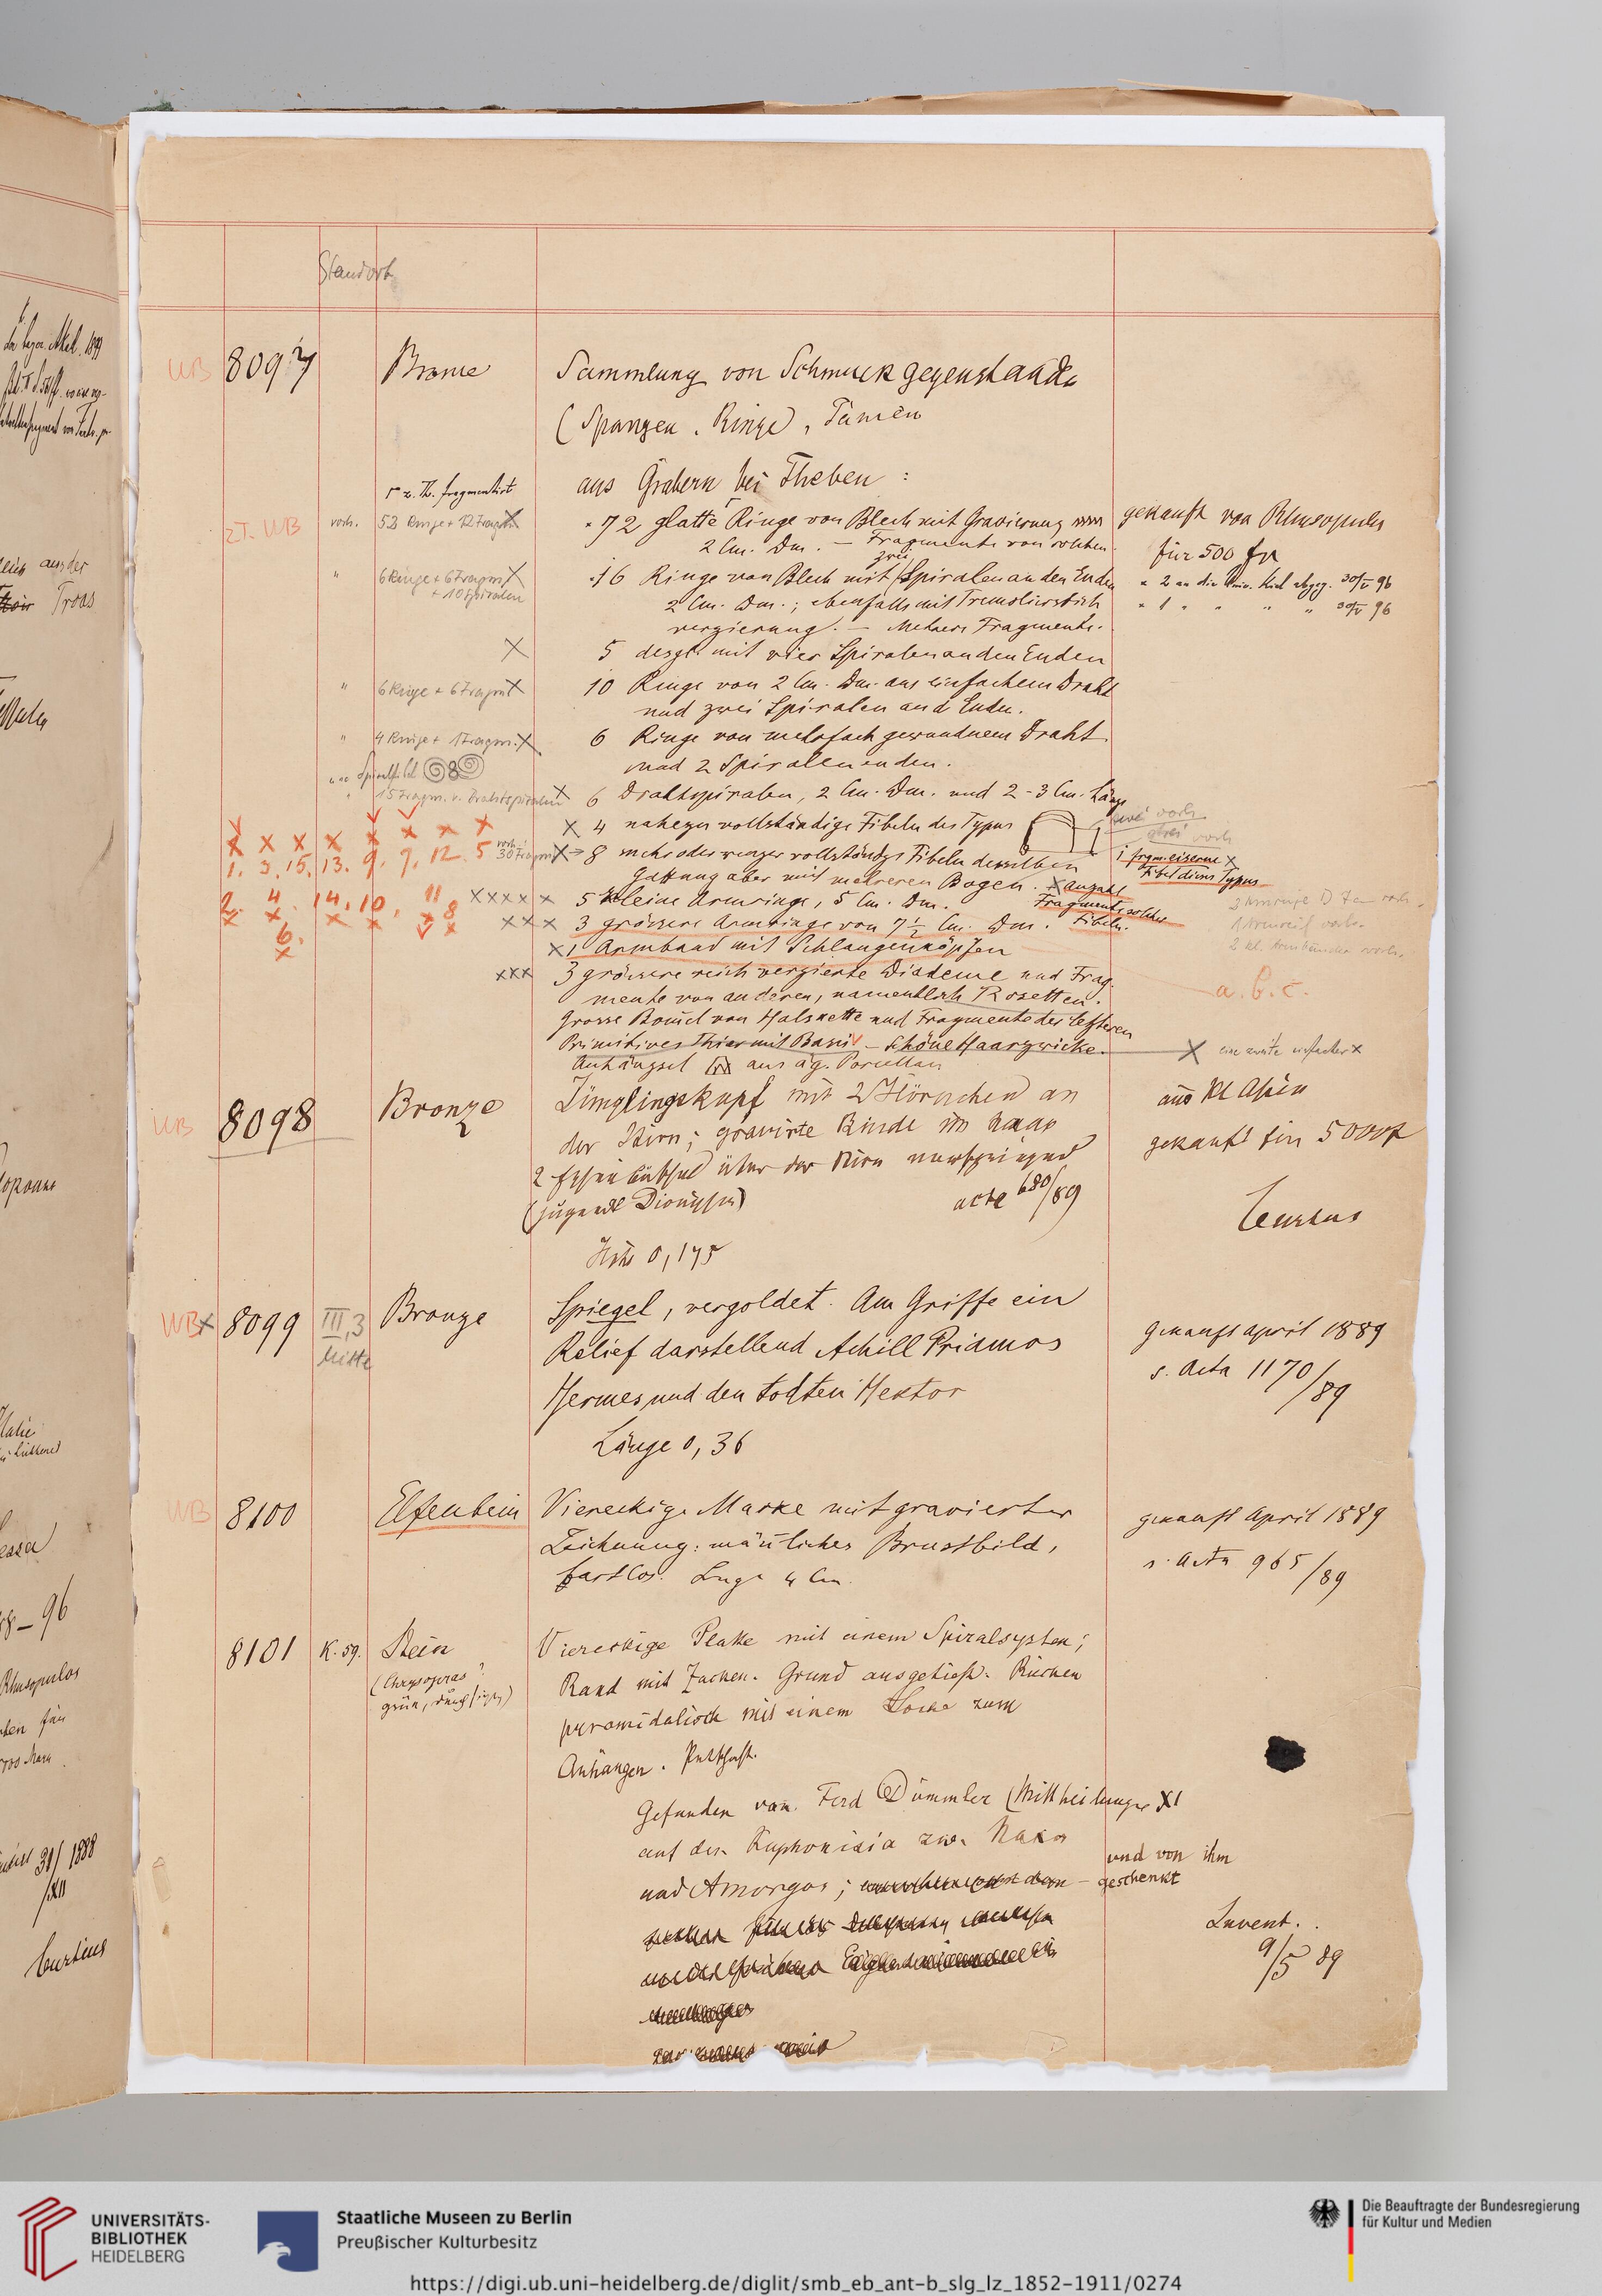 Standort
WB 8097 Bronce Sammlung von Schmuckgegenständen
(Spangen, Ringe, Tänien
aus Gräbern bei Theben :
z. Th. fragmentirt
z.T. WB vorh. 52 Ringe + 12 Fragm. X 72 glatte Ringe von Blech mit Gravierung gekauft von Rhusopulos
2 Cm. Dm. — Fragmente von solchen. für 500 fr
" 6 Ringe + 6 Fragm. X 16 Ringe von Blech mit zwei Spiralen an den Enden 2 an die Univ. Kiel abgeg. 30/V 96
+ 10 Spiralen 2 Cm. Dm.; ebenfalls mit Tremolierstich 1 " " " " 30/V 96
verzierung. — Mehrere Fragmente.
X 5 desgl. mit vier Spiralen an den Enden
" 6 Ringe + 6 Fragm. X 10 Ringe von 2 Cm. Dm. aus einfachem Draht
und zwei Spiralen an d Enden.
" 4 Ringe + 1 Fragm. X 6 Ringe von mehrfach gewundnem Draht
und 2 Spiralenenden.
15 Fragm. v. Drahtspiralen X 6 Drahtspiralen, 2 Cm. Dm. und 2-3 Cm. Länge
X 4 nahezu vollständige Fibeln des Typus zwei vorh.
drei vorh
1. 3. 15. 13. 9. 7. 12. 5 vorh. 30 Fragm. X 8 mehr oder weniger vollständige Fibeln desselben 1 frgm. eiserne X
Gattung aber mit mehreren Bogen. X Anzahl Fibel dieses Typus
2. 4. 14. 10. 11 8 X X X X X 5 kleine Armringe, 5 Cm. Dm. Fragmente solcher
6. X X X 3 grössere Armringe von 7 1/2 Cm. Dm. Fibeln.
X 1 Armband mit Schlangenköpfen
X X X 3 grössere reich verzierte Diademe und Frag-
mente von anderen, namentlich Rosetten. a. b. c.
Grosse Bommel von Halskette und Fragmente der letzteren
Primitives Thier mit Basis — schöne Haarzwicke. X eine zweite einfacher X
Anhängsel aus äg. Porcellan
WB 8098 Bronze Jünglingskopf mit 2 Hörnchen an aus Kl Asien
der Stirn; gravirte Binde im Haar gekauft für 5000
2 über der Stirn
(jugendl Dionysos) acte 680/89 Curtius
Höhe 0,175
WB X 8099 III,3 Mitte Bronze Spiegel, vergoldet. Am Griffe ein gekauft april 1889
Relief darstellend Achill Priamos s. Acta 1170/89
Hermes und den todten Hektor
Länge 0,36
WB 8100 Elfenbein Viereckige Marke mit gravierter gekauft April 1889
Zeichnung: männliches Brustbild, s. Acta 965/89
bartlos. Lnge 4 Cm.
8101 K. 59. Stein Viereckige Platte mit einem Spiralsystem;
(Chrysopras? Rand mit Zacken. Grund ausgetieft. Rücken
grün, durchsichtig) pyramidalisch mit einem Loche zum
Anhängen. Petschaft.
Gefunden von Ferd Dümmler (Mittheilungen XI
auf den Kuphonisia zw. Naxos und von ihm
und Amorgos; geschenkt
Invent.
9/5 89
aus der
Troas
96
Rhusopulos
31/XII 1888
Curtius
UNIVERSITÄTS-
BIBLIOTHEK
HEIDELBERG
Staatliche Museen zu Berlin
Preußischer Kulturbesitz
Die Beauftragte der Bundesregierung
für Kultur und Medien
https://digi.ub.uni-heidelberg.de/diglit/smb_eb_ant-b_slg_lz_1852-1911/0274